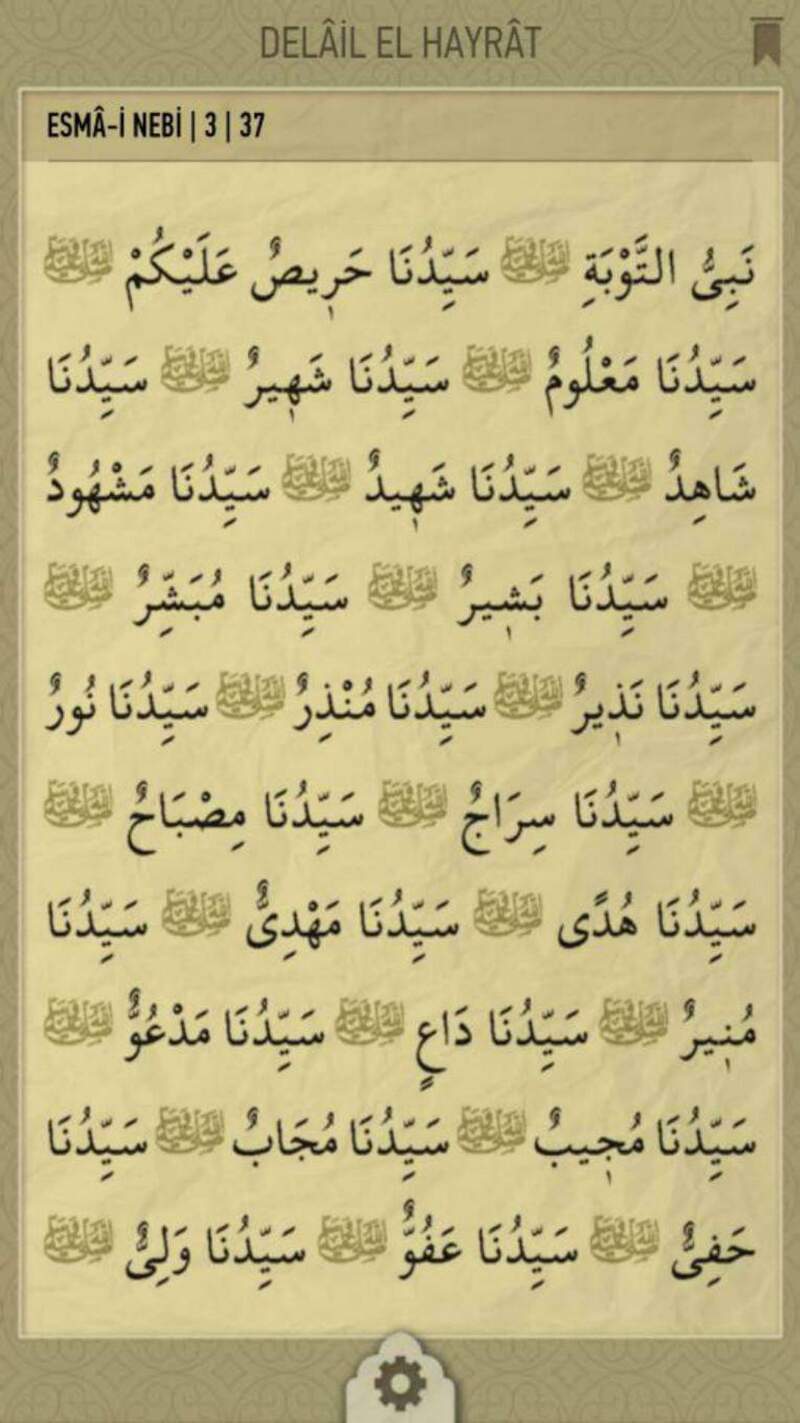 DELÂİL EL HAYRÂT
ESMÂ-İ NEBİ | 3 | 37
نَبِىُّ التَّوْبَةِ ﷺ سَيِّدُنَا حَرِيصٌ عَلَيْكُمْ ﷺ
سَيِّدُنَا مَعْلُومٌ ﷺ سَيِّدُنَا شَهِيرٌ ﷺ سَيِّدُنَا
شَاهِدٌ ﷺ سَيِّدُنَا شَهِيدٌ ﷺ سَيِّدُنَا مَشْهُودٌ
ﷺ سَيِّدُنَا بَشِيرٌ ﷺ سَيِّدُنَا مُبَشِّرٌ ﷺ
سَيِّدُنَا نَذِيرٌ ﷺ سَيِّدُنَا مُنْذِرٌ ﷺ سَيِّدُنَا نُورٌ
ﷺ سَيِّدُنَا سِرَاجٌ ﷺ سَيِّدُنَا مِصْبَاحٌ ﷺ
سَيِّدُنَا هُدًى ﷺ سَيِّدُنَا مَهْدِىٌّ ﷺ سَيِّدُنَا
مُنِيرٌ ﷺ سَيِّدُنَا دَاعٍ ﷺ سَيِّدُنَا مَدْعُوٌّ ﷺ
سَيِّدُنَا مُجِيبٌ ﷺ سَيِّدُنَا مُجَابٌ ﷺ سَيِّدُنَا
حَفِىٌّ ﷺ سَيِّدُنَا عَفُوٌّ ﷺ سَيِّدُنَا وَلِىٌّ ﷺ